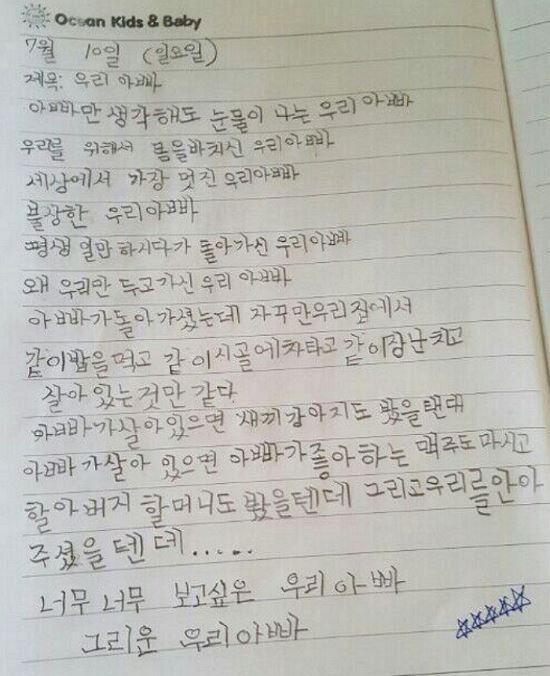 Ocean Kids & Baby
7월 10일 (일요일)
제목: 우리 아빠
아빠만 생각해도 눈물이 나는 우리 아빠
우리를 위해서 몸을바치신 우리아빠
세상에서 가장 멋진 우리아빠
불쌍한 우리아빠
평생 일만 하시다가 돌아가신 우리아빠
왜 우리만 두고가신 우리 아빠
아빠가 돌아가셨는데 자꾸만우리 집에서
같이밥을 먹고 같이시골에차타고 같이장난치고
살아 있는것만 같다
아빠가살아있으면 새끼강아지도 봤을탠대
아빠가살아 있으면 아빠가좋아하는 맥주도 마시고
할아버지 할머니도 봤을텐데 그리고우리를안아
주셨을 텐데......
너무 너무 보고싶은 우리 아빠
그리운 우리아빠